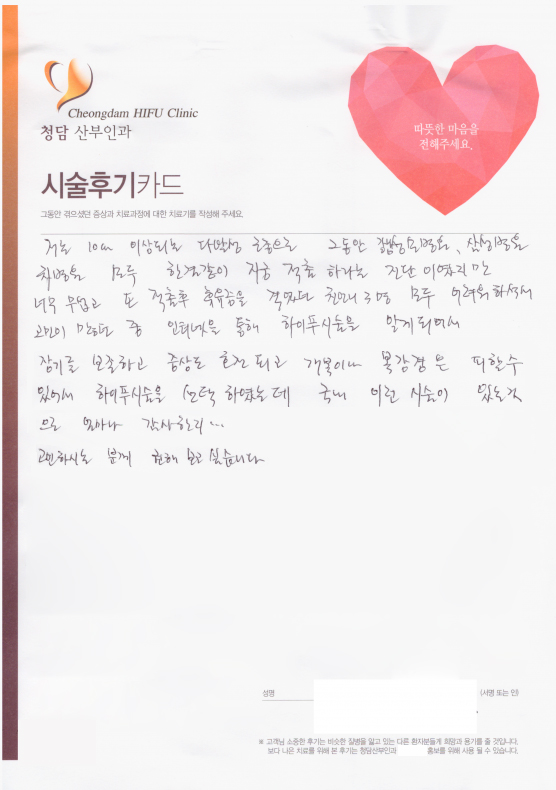 Cheongdam HIFU Clinic
청담 산부인과
따뜻한 마음을
전해주세요.
시술후기카드
그동안 겪으셨던 증상과 치료과정에 대한 치료기를 작성해 주세요.
저는 10cm 이상되는 다발성 근종으로 그동안 병원, 삼성병원
병원 모두 한결같이 자궁 적출 하라는 진단 이였지만
너무 무섭고 또 적출후 후유증을 겪었던 3명 모두 하셔서
고민이 많던 중 인터넷을 통해 하이푸시술을 알게되어서
장기를 보존하고 증상도 호전 되고 개복이나 복강경은 피할수
있어서 하이푸시술을 선택 하였는데 국내 이런 시술이 있는것
으로 얼마나 감사한지...
고민하시는 분께 권해 보고 싶습니다
성명
(서명 또는 인)
※ 고객님 소중한 후기는 비슷한 질병을 앓고 있는 다른 환자분들게 희망과 용기를 줄 것입니다.
보다 나은 치료를 위해 본 후기는 청담산부인과 홍보를 위해 사용 될 수 있습니다.